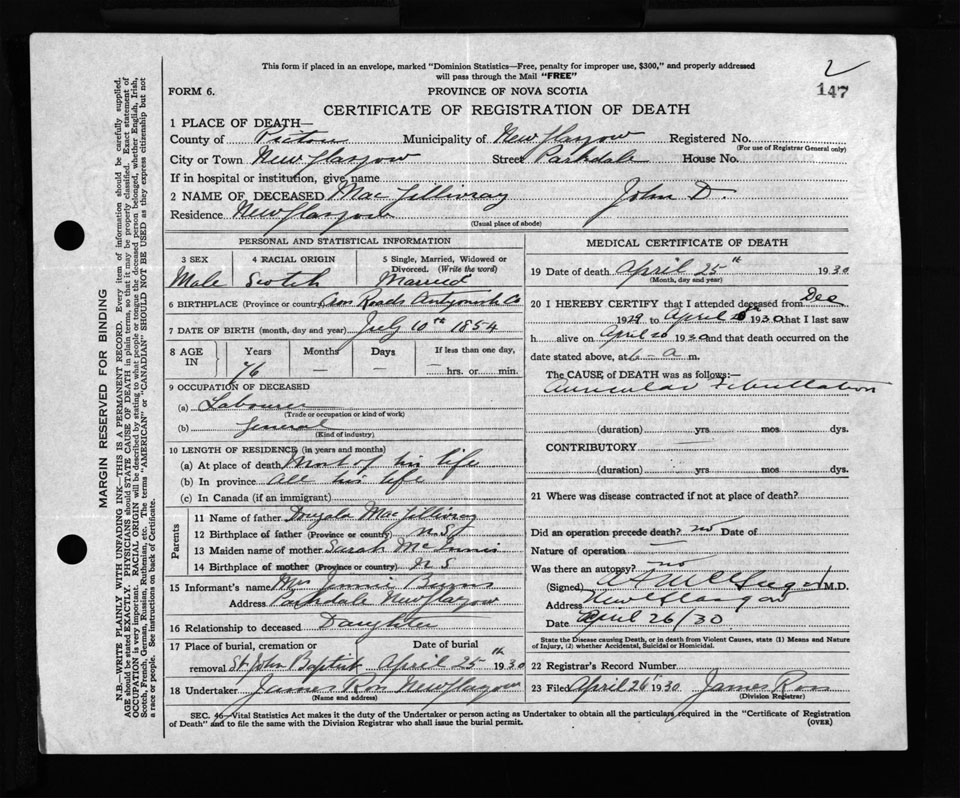 This form if placed in an envelope, marked "Dominion Statistics—Free, penalty for improper use, $300," and properly addressed
will pass through the Mail "FREE"
2
147
FORM 6.
PROVINCE OF NOVA SCOTIA
CERTIFICATE OF REGISTRATION OF DEATH
1 PLACE OF DEATH—
County of Pictou Municipality of New Glasgow Registered No.
(For use of Registrar General only)
City or Town New Glasgow Street Parkdale House No.
If in hospital or institution, give name
2 NAME OF DECEASED MacGillivray John D.
Residence New Glasgow
(Usual place of abode)
PERSONAL AND STATISTICAL INFORMATION
3 SEX 4 RACIAL ORIGIN 5 Single, Married, Widowed or
Divorced. (Write the word)
Male Scotch Married
6 BIRTHPLACE (Province or county) Roads Co
7 DATE OF BIRTH (month, day and year) July 10th 1854
8 AGE IN Years Months Days If less than one day,
76 — — — hrs. or min.
9 OCCUPATION OF DECEASED
(a) Labourer
(Trade or occupation or kind of work)
(b) General
(Kind of industry)
10 LENGTH OF RESIDENCE (in years and months)
(a) At place of death Most of his life
(b) In province All his life
(c) In Canada (if an immigrant)
Parents
11 Name of father MacGillivray
12 Birthplace of father (Province or county) N.S.
13 Maiden name of mother Sarah McInnis
14 Birthplace of mother (Province or county) N S
15 Informant's name Mrs Jennie
Address Parkdale New Glasgow
16 Relationship to deceased Daughter
17 Place of burial, cremation or Date of burial
removal St John Baptist April 25th 1930
18 Undertaker James Ross New Glasgow
(Name and address)
MEDICAL CERTIFICATE OF DEATH
19 Date of death April 25th 1930
(Month, day and year)
20 I HEREBY CERTIFY that I attended deceased from Dec
1929 to April 1930 that I last saw
h alive on April 20 1930 and that death occurred on
date stated above, at 6 – a m.
The CAUSE of DEATH was as follows:—
Auricular Fibrillation
(duration) yrs mos dys.
CONTRIBUTORY
(duration) yrs mos dys.
21 Where was disease contracted if not at place of death?
Did an operation precede death? no Date of
Nature of operation —
Was there an autopsy? no
(Signed) M.D.
Address New Glasgow
Date April 26/30
State the Disease causing Death, or in death from Violent Causes, state (1) Means and Nature
of Injury, (2) whether Accidental, Suicidal or Homicidal.
22 Registrar's Record Number
23 Filed April 26 1930 James Ross
(Division Registrar)
SEC. 46—Vital Statistics Act makes it the duty of the Undertaker or person acting as Undertaker to obtain all the particulars required in the "Certificate of Registration
of Death" and to file the same with the Division Registrar who shall issue the burial permit.
(OVER)
MARGIN RESERVED FOR BINDING
N.B.—WRITE PLAINLY WITH UNFADING INK—THIS IS A PERMANENT RECORD. Every item of information should be carefully supplied.
AGE should be stated EXACTLY. PHYSICIANS should STATE CAUSE OF DEATH in plain terms, so that it may be properly classified. Exact statement of
OCCUPATION is very important. RACIAL ORIGIN will be described by stating to what people or tongue the deceased person belonged, whether English, Irish,
Scotch, French, German, Russian, Ruthenian, etc. The terms "AMERICAN" or "CANADIAN" SHOULD NOT BE USED as they express citizenship but not
a race or people. See instructions on back of Certificate.